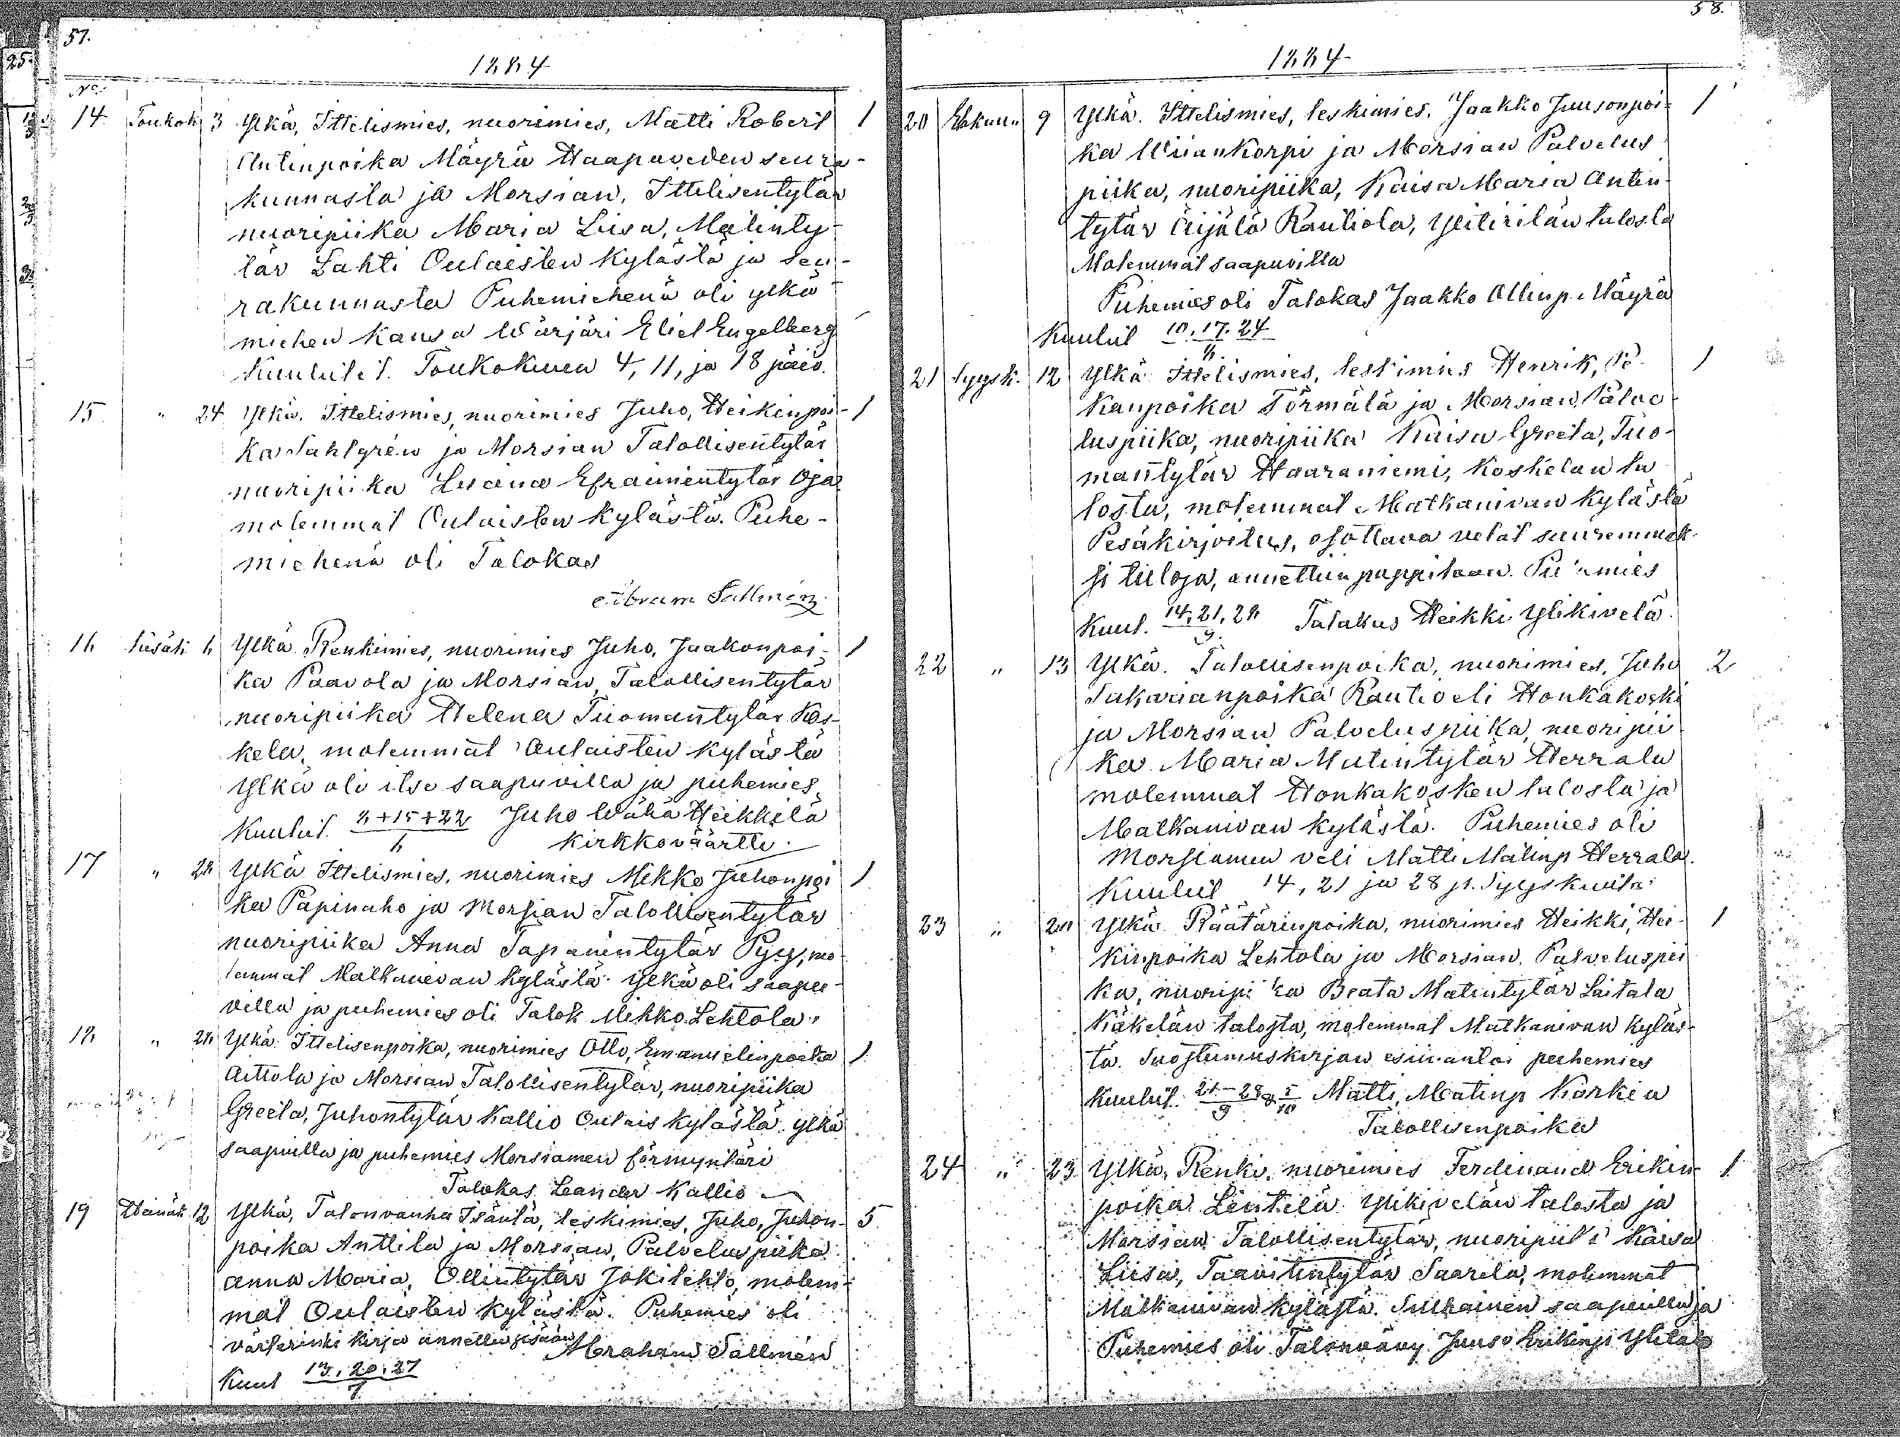 57.
1884
No.
14. Toukok. 3 Ylkä, Ittelismies, nuorimies, Matti Robert 1
Antinpoika Mäyrä Haapaveden seura-
kunnasta ja Morsian, Ittelisentytär
nuoripiika Maria Liisa, Matinty-
tär Lahti Oulaisten kylästä ja seu-
rakunnasta Puhemiehenä oli ylkä-
miehen kanssa Wärjäri Eliel Engelberg
Kuulutet. Toukokuun 4, 11, ja 18 päiv.
15. " 24 Ylkä. Ittelismies, nuorimies Juho, Heikinpoi- 1
ka Sahlgrén ja Morsian Talollisentytär
nuoripiika Efraimintytär Oja
molemmat Oulaisten kylästä. Puhe-
miehenä oli Talokas
Abram Sallmén
16 Kesäk. 6 Ylkä. Renkimies, nuorimies Juho, Jaakonpoi- 1
ka Paavola ja Morsian, Talollisentytär
nuoripiika Helena Tuomantytär Kos-
kela, molemmat Oulaisten kylästä
Ylkä oli itse saapuvilla ja puhemies
Kuulut. 8+15+22/6 Juho Wähä Heikkilä
Kirkkoväärtti.
17 " 28 Ylkä Ittelismies, nuorimies Mikko Juhonpoi 1
ka Papinaho ja Morsian Talollisentytär
nuoripiika Anna Tapanintytär Pyy, mo-
lemmat Matkanivan kylästä. Ylkä oli saapu-
villa ja puhemies oli Talok. Mikko Lehtola.
18 " 28 Ylkä. Ittelisenpoika, nuorimies Otto, Emanuelinpoika 1
Aittola ja Morsian Talollisentytär, nuoripiika
Greeta, Juhontytär Kallio Oulais kylästä. Ylkä
saapuilla ja puhemies Morsiamen förmyntäri
Talokas Leander Kallio
19 Heinäk. 12 Ylkä, Talonvanha Isäntä, leskimies, Juho, Juhon- 5
poika Anttila ja Morsian, Palveluspiika
Anna Maria, Ollintytär Jokilehto, molem-
mat Oulaisten kylästä. Puhemies oli
kirja annettiin sisään Abraham Sallmén
Kuul 13. 20. 27/7
58.
1884
20 Elokuu 9 Ylkä. Ittelismies, leskimies, Jaakko Juusonpoi- 1
ka Wiiankorpi ja Morsian Palvelus
piika, nuoripiika, Kaisa Maria Antin-
tytär Äijälä Rautiola, talosta
Molemmat saapuvilla
Puhemies oli Talokas Jaakko Ollinp. Mäyrä
Kuulut 10. 17. 24/8
21 Syysk. 12 Ylkä Ittelismies, leskimies Henrik,
kanpoika Törmälä ja Morsian, Palve-
luspiika, nuoripiika Kaisa Greeta, Tuo-
mantytär Haaraniemi, Koskelan ta
losta, molemmat Matkanivan kylästä
Pesäkirjoitus, osottava velat suuremmak-
si tuloja, annettiin pappilaan. Puhemies
Kuul. 14. 21. 28/9. Talokas Heikki Ylikivelä
22 " 13 Ylkä. Talollisenpoika, nuorimies, Juho 2
Sakarianpoika Rautio eli Honkakoski
ja Morsian Palveluspiika, nuoripii-
ka Maria Matintytär Herrala
molemmat Honkakosken talosta ja
Matkanivan kylästä. Puhemies oli
Morsiamen veli Matti Matinp Herrala.
Kuulut 14, 21 ja 28 p. Syyskuuta
23 " 20 Ylkä. Räätärinpoika, nuorimies Heikki, Hei- 1
kinpoika Lehtola ja Morsian, Palveluspii
ka, nuoripiika Beata Matintytär Laitala
Käkelän talosta, molemmat Matkanivan kyläs-
tä. Suostumuskirjan esiinantoi puhemies
Kuulut. 21-28/9 & 5/10 Matti, Matinp Karkia
Talollisenpoika
24 " 23 Ylkä, Renki, nuorimies Ferdinand Erikin- 1
poika Lintilä Ylikivelän talosta ja
Morsian Talollisentytär, nuoripiika Kaisa
Liisa, Taavitintytär Saarela, molemmat
Matkanivan kylästä. Sulhainen saapuilla ja
Puhemies oli Talonväny Juuso Erikinp Ylitalo